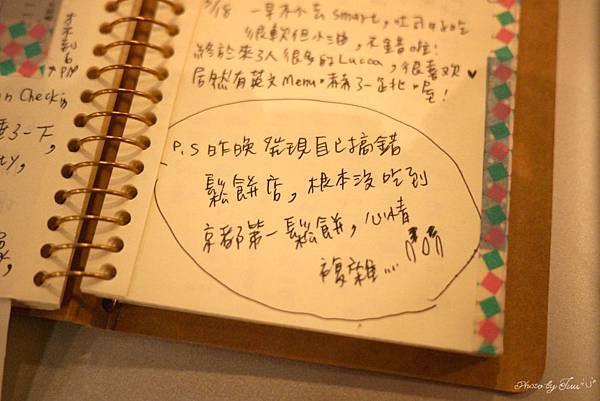 3/18 一早杯去 smart,吐司好吃
很軟但小油,不錯啦!
終於來了人很多的 Lucca,很喜歡♥
居然有英文 Menu。
P.S 昨晚發現自己搞錯
鬆餅店,根本沒吃到
京都第一鬆餅,心情
複雜...
才不到6
↑PM
n Checkin
睡了一下,
ty,
Photo by Tiui